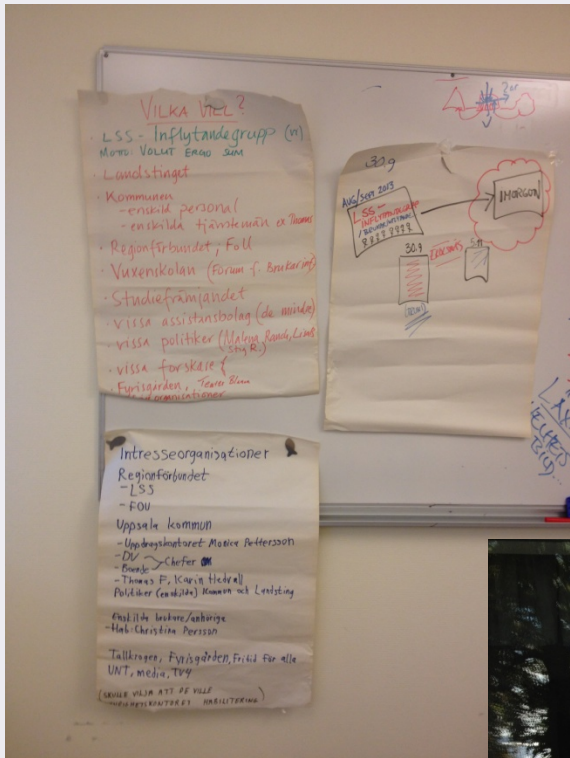 VILKA VILL?
· LSS - Inflytandegrupp
MOTO: VOLUT ERGO SUM
· Landstinget
· Kommunen
- enskild personal
- enskilda tjänstemän ex Thomas
· Regionförbundet, FoU
· Vuxenskolan (Forum f. Brukarinf
· Studiefrämjandet
· vissa assistansbolag (de mindre)
· vissa politiker (Malena Ranch,
Stig R.)
· vissa forskare
· Fyrisgården, Teater Blanca
organisationer
30.9
AUG/SEPT 2013
LSS-
INFLYTANDEGRUPP
IMORGON
30.9
Intresseorganisationer
Regionförbundet
- LSS
- FOU
Uppsala kommun
- Uppdragskontoret Monica Pettersson
- DV
- Boende
Chefer
- Thomas F, Karin Hedvall
Politiker (enskilda) Kommun och Landsting
Enskilda brukare/anhöriga
- Hab Christina Persson
Tallkrogen, Fyrisgården, Fritid för alla
UNT, media, TV4
(SKULLE VILJA ATT DE VILLE
HABILITERING